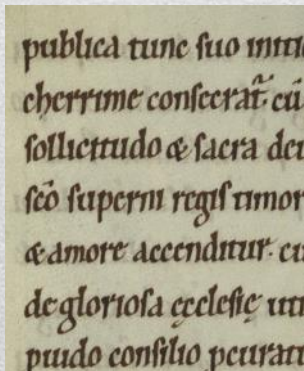 publica tunc suo initi
cherrime consecrat̃. cū
sollicitudo & sacra dei
sc̄o superni regis timor
& amore accenditur. cu
de gloriosa ęcclesię uti
puido consilio pcurat